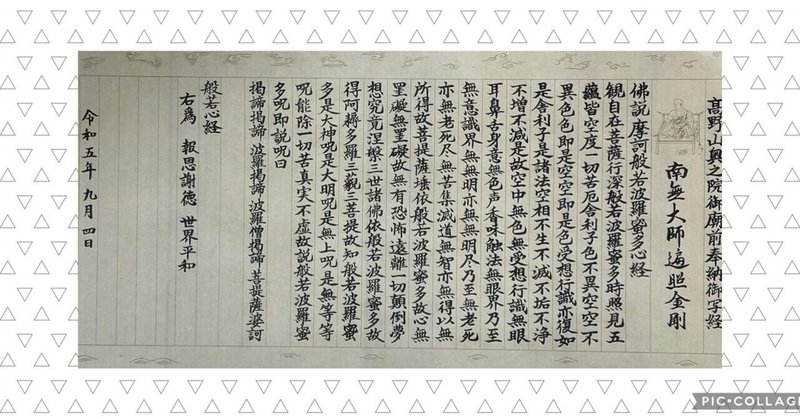 髙野山奥之院御廟前奉納御写経
南無大師遍照金剛
佛説摩訶般若波羅蜜多心経
観自在菩薩行深般若波羅蜜多時照見五
蘊皆空度一切苦厄舎利子色不異空空不
異色色即是空空即是色受想行識亦復如
是舎利子是諸法空相不生不滅不垢不浄
不増不減是故空中無色無受想行識無眼
耳鼻舌身意無色声香味触法無眼界乃至
無意識界無無明亦無無明尽乃至無老死
亦無老死尽無苦集滅道無智亦無得以無
所得故菩提薩埵依般若波羅蜜多故心無
罣礙無罣礙故無有恐怖遠離一切顛倒夢
想究竟涅槃三世諸佛依般若波羅蜜多故
得阿耨多羅三藐三菩提故知般若波羅蜜
多是大神呪是大明呪是無上呪是無等等
呪能除一切苦真実不虚故説般若波羅蜜
多呪即説呪曰
揭諦揭諦 波羅揭諦 波羅僧揭諦 菩提薩婆訶
般若心経
右為 報恩謝德 世界平和
令和五年 九月 四日
PIC•COLLAG